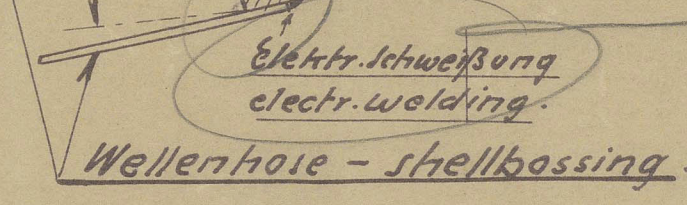 Elektr. Schweißung
electr. welding.
Wellenhose - shellbossing.